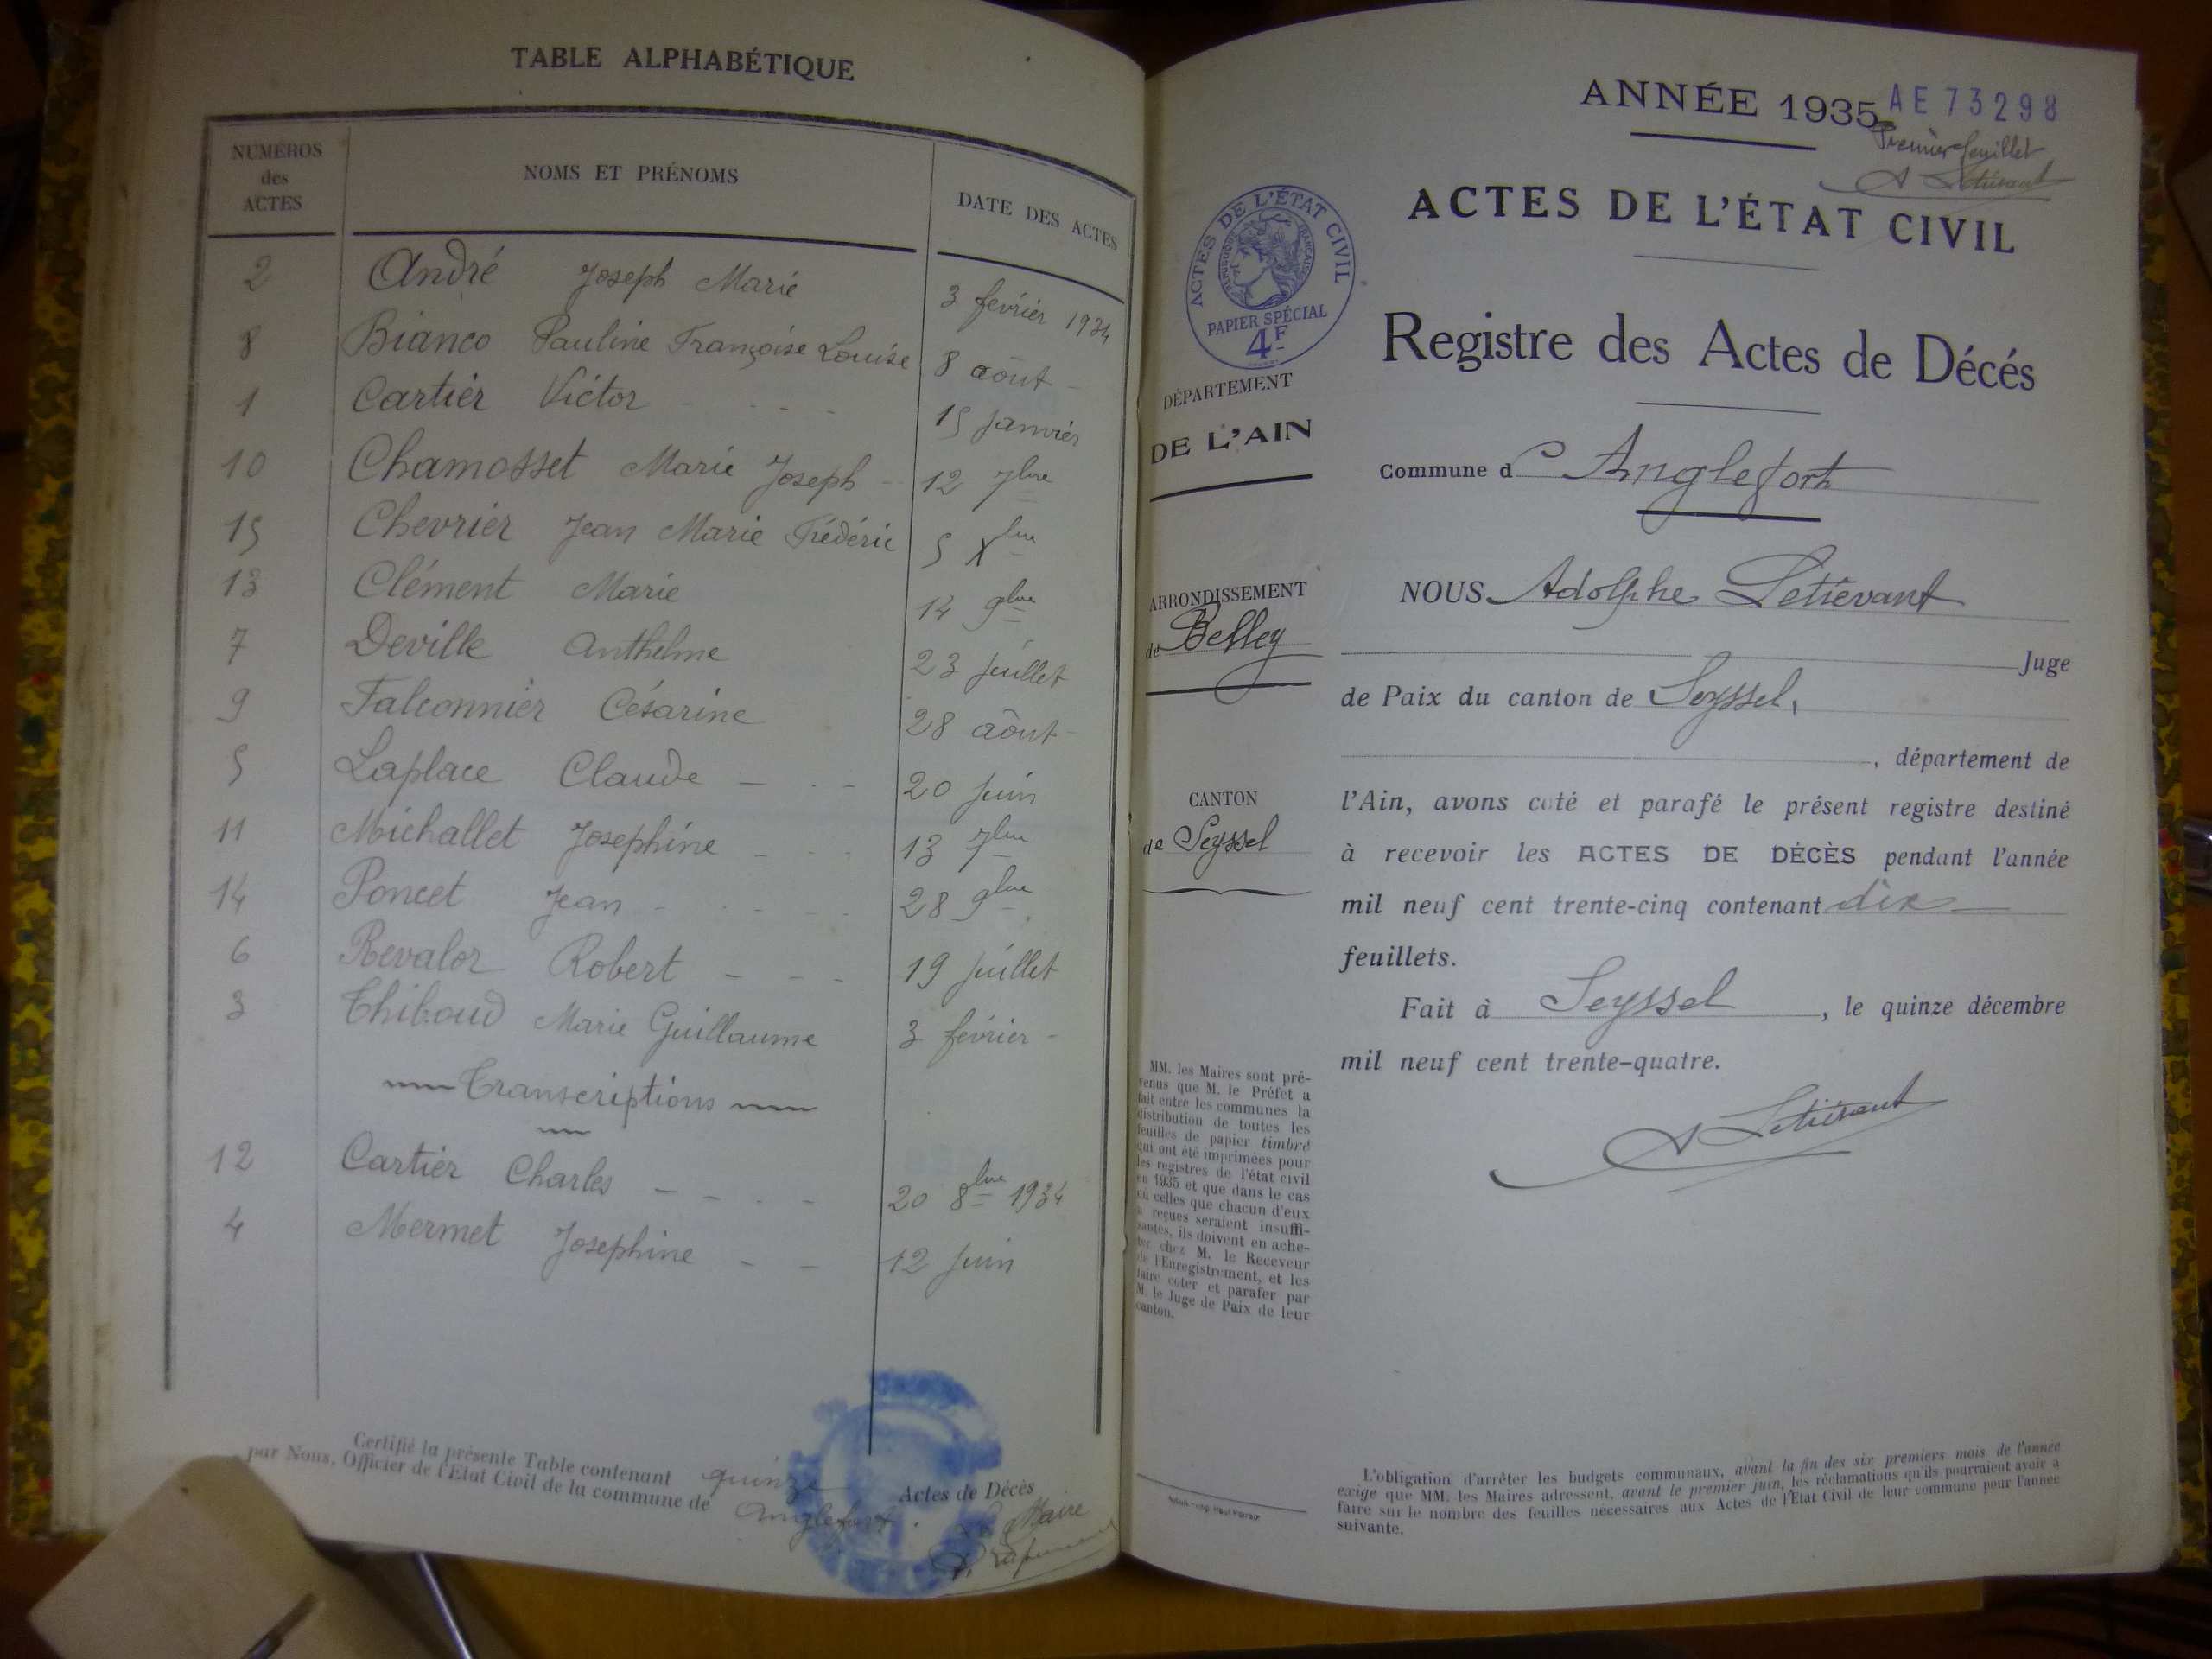 TABLE ALPHABÉTIQUE
NUMÉROS
des
ACTES
NOMS ET PRÉNOMS
DATE DES ACTES
2 André Joseph Marie 3 février 1934
8 Bianco Pauline Françoise Louise 8 aôut -
1 Cartier Victor - - - - 15 Janvier
10 Chamosset Marie Joseph - 12 7bre
15 Chevrier Jean Marie Frédéric 5 Xbre
13 Clément Marie 14 9bre
7 Deville Anthelme 23 Juillet
9 Falconnier Césarine 28 aôut -
5 Laplace Claude - - - 20 Juin
11 Michallet Josephine - - - 13 7bre
14 Poncet Jean - - - - 28 9bre
6 Revalor Robert - - - 19 Juillet
3 Thiboud Marie Guillaume 3 février -
Transcriptions
12 Cartier Charles - - - - 20 8bre 1934
4 Mermet Josephine - - 12 Juin
Certifié la présente Table contenant quinze Actes de Décès
par Nous, Officier de l'Etat Civil de la commune de Anglefort.
Le Maire
ANNÉE 1935
AE 73298
Premier feuillet
A Letiévant
ACTES DE L'ÉTAT CIVIL
ACTES DE L'ÉTAT CIVIL
RÉPUBLIQUE FRANÇAISE
PAPIER SPÉCIAL
4F
Registre des Actes de Décés
DÉPARTEMENT
DE L'AIN
Commune d'Anglefort
ARRONDISSEMENT
de Belley
NOUS Adolphe Letiévant
Juge
de Paix du canton de Seyssel,
, département de
CANTON
de Seyssel
l'Ain, avons coté et parafé le présent registre destiné
à recevoir les ACTES DE DÉCÈS pendant l'année
mil neuf cent trente-cinq contenant dix
feuillets.
Fait à Seyssel, le quinze décembre
mil neuf cent trente-quatre.
A Letiévant
MM. les Maires sont pré-
venus que M. le Préfet a
fait entre les communes la
distribution de toutes les
feuilles de papier timbré
qui ont été imprimées pour
les registres de l'état civil
en 1935 et que dans le cas
où celles que chacun d'eux
a reçues seraient insuffi-
santes, ils doivent en ache-
ter chez M. le Receveur
de l'Enregistrement, et les
faire coter et parafer par
M. le Juge de Paix de leur
canton.
L'obligation d'arrêter les budgets communaux, avant la fin des six premiers mois de l'année
exige que MM. les Maires adressent, avant le premier juin, les réclamations qu'ils pourraient avoir à
faire sur le nombre des feuilles nécessaires aux Actes de l'Etat Civil de leur commune pour l'année
suivante.